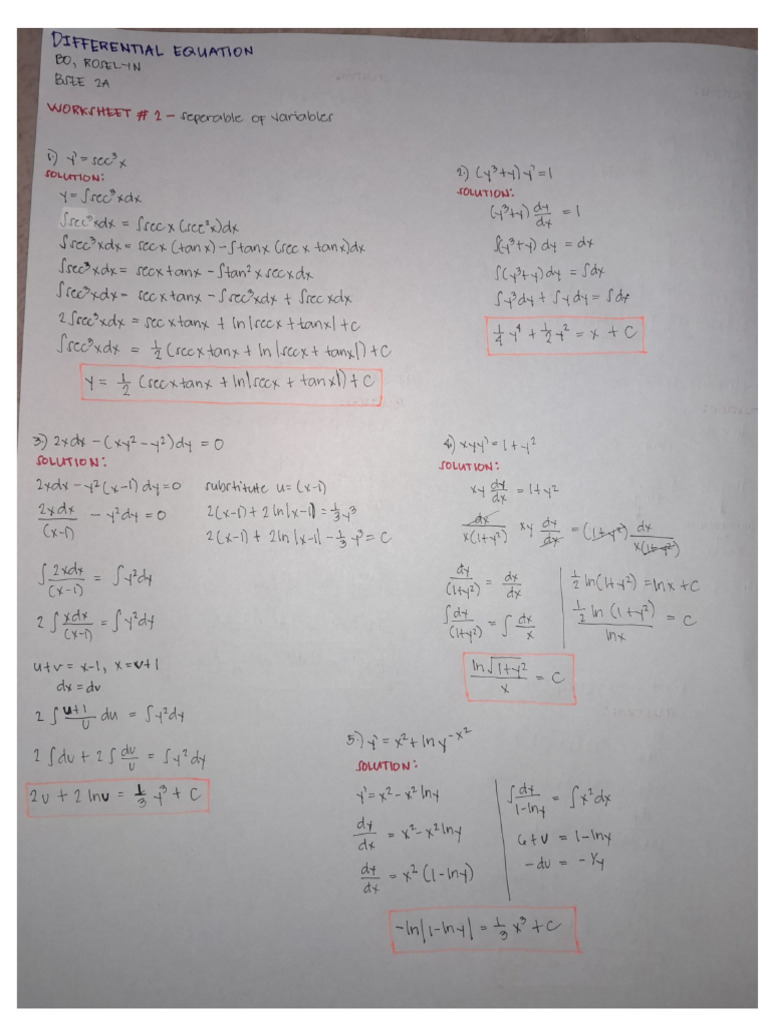 DIFFERENTIAL EQUATION
BO, ROSELYN
BSEE 2A
WORKSHEET # 2 – seperable of variables
1.) y' = sec³x
SOLUTION:
y = ∫sec³xdx
∫sec³xdx = ∫secx (sec²x)dx
∫sec³xdx = secx (tanx) - ∫tanx (secx tanx)dx
∫sec³xdx = secx tanx - ∫tan²x secx dx
∫sec³xdx - secx tanx - ∫sec³xdx + ∫secxdx
2∫sec³xdx = secxtanx + ln|secx + tanx| + C
∫sec³xdx = 1/2 (secxtanx + ln|secx + tanx|) + C
y = 1/2 (secxtanx + ln|secx + tanx|) + C
2.) (y³+y)y' = 1
SOLUTION:
(y³+y) dy/dx = 1
∫(y³+y) dy = dx
∫(y³+y)dy = ∫dx
∫y³dy + ∫ydy = ∫dx
1/4 y⁴ + 1/2 y² = x + C
3.) 2xdx - (xy² - y²)dy = 0
SOLUTION:
2xdx - y²(x-1)dy = 0
2xdx/(x-1) - y²dy = 0
∫2xdx/(x-1) = ∫y²dy
2∫xdx/(x-1) = ∫y²dy
u+v = x-1, x = v+1
dx = dv
2∫u+1/u du = ∫y²dy
2∫du + 2∫dv/v = ∫y²dy
2v + 2lnv = 1/3 y³ + C
substitute u = (x-1)
2(x-1) + 2ln|x-1| = 1/3 y³
2(x-1) + 2ln|x-1| - 1/3 y³ = C
4.) xyy' = 1+y²
SOLUTION:
xy dy/dx = 1+y²
dx/x(1+y²) xy dy/dx = (1+y²) dx/x(1+y²)
dy/(1+y²) = dx/dx
∫dy/(1+y²) = ∫dx/x
1/2 ln(1+y²) = lnx + C
1/2 ln(1+y²)/lnx = C
ln√1+y²/x = C
5.) y' = x² + ln y^-x²
SOLUTION:
y' = x² - x² lny
dy/dx = x² - x² lny
dy/dx = x² (1-lny)
∫dy/1-lny = ∫x²dx
6+v = 1-lny
-du = -1/y
-ln|1-lny| = 1/3 x³ + C